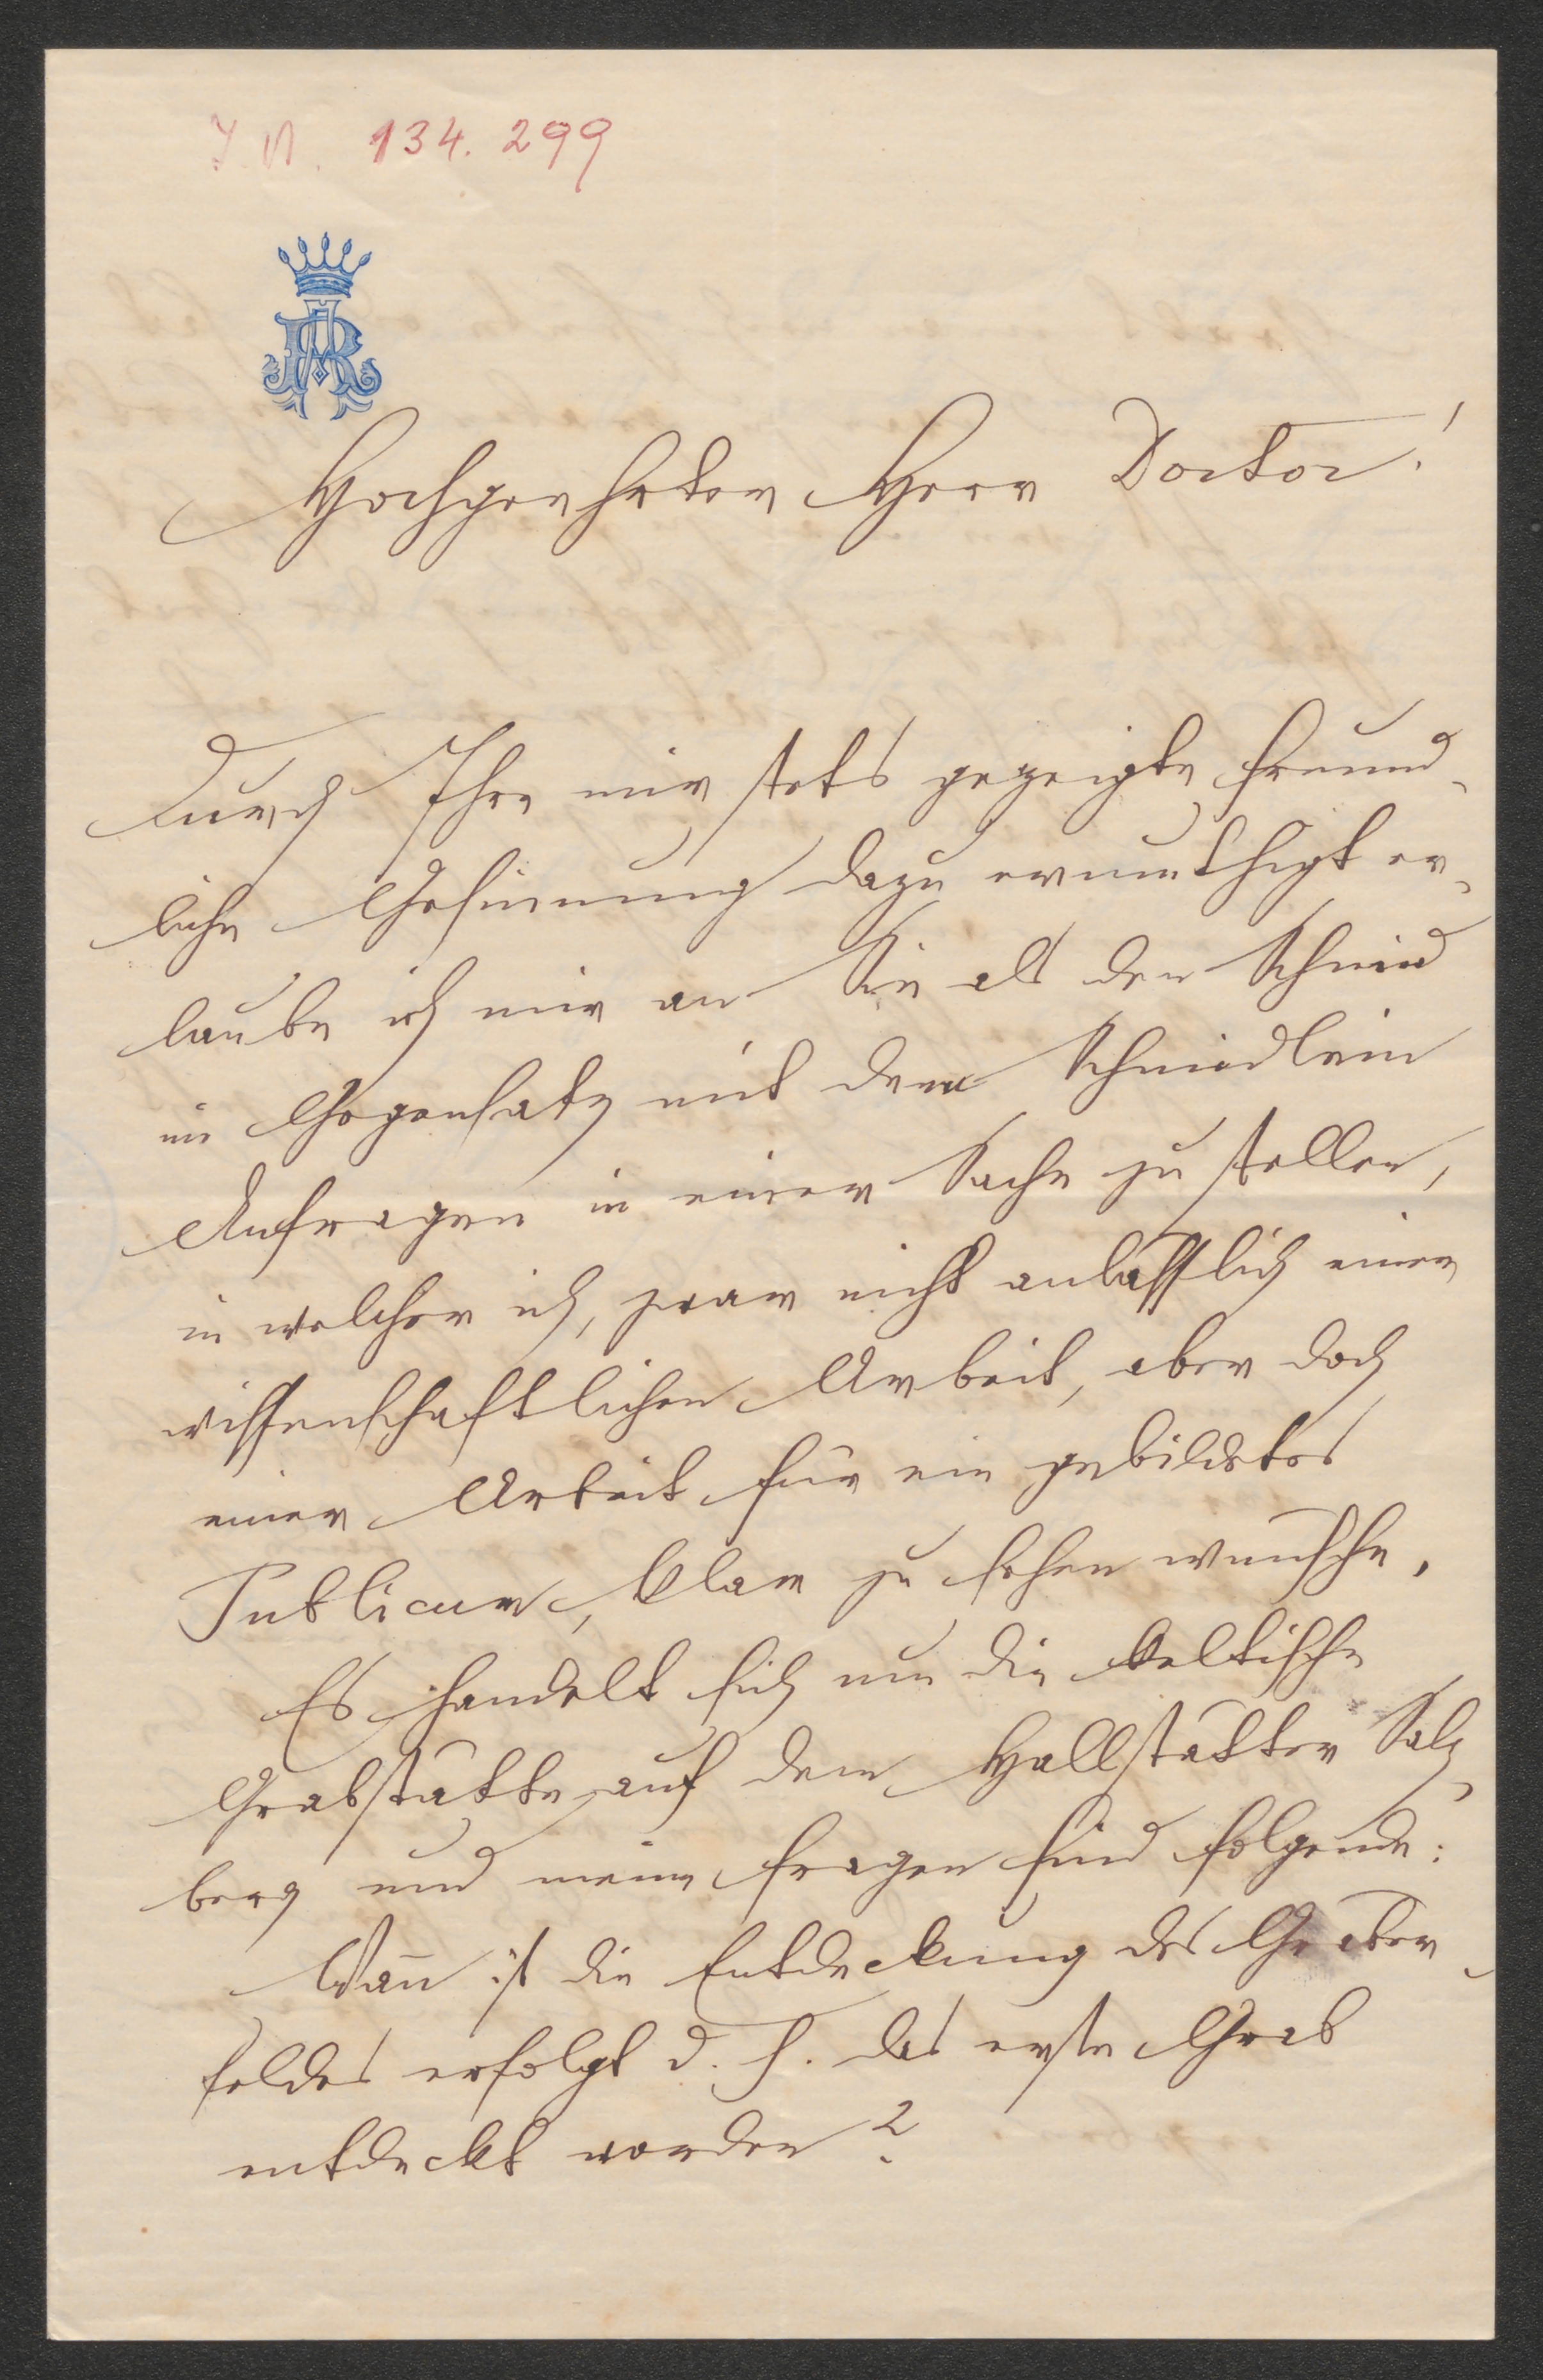 J.N. 134.299
AR
Hochgeehrter Herr Doctor!
Durch Ihre mir stets gezeigte freund-
liche Gesinnung dazu ermuthigt er-
laube ich mir an Sie als den Schmied
im Gegensatz mit dem Schmiedlein
Anfragen in einer Sache zu stellen,
in welcher ich, zwar nicht anlässlich einer
wissenschaftlichen Arbeit, aber doch
einer Arbeit für ein gebildetes
Publicum, klar zu sehen wünsche.
Es handelt sich um die keltische
Grabstätte auf dem Hallstätter Salz-
berg und meine Fragen sind folgende:
Wañ ist die Entdeckung des Gräber-
feldes erfolgt d. h. das erste Grab
entdeckt worden?